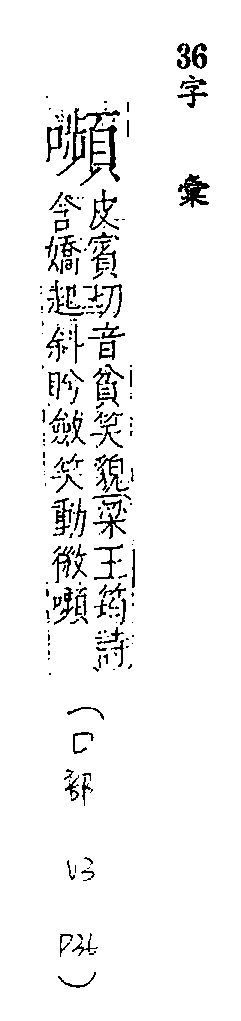 36字彙
嚬
皮賓切音貧笑貌梁王筠詩
含嬌起斜盻斂笑動微嚬
(口部 V3 P36)